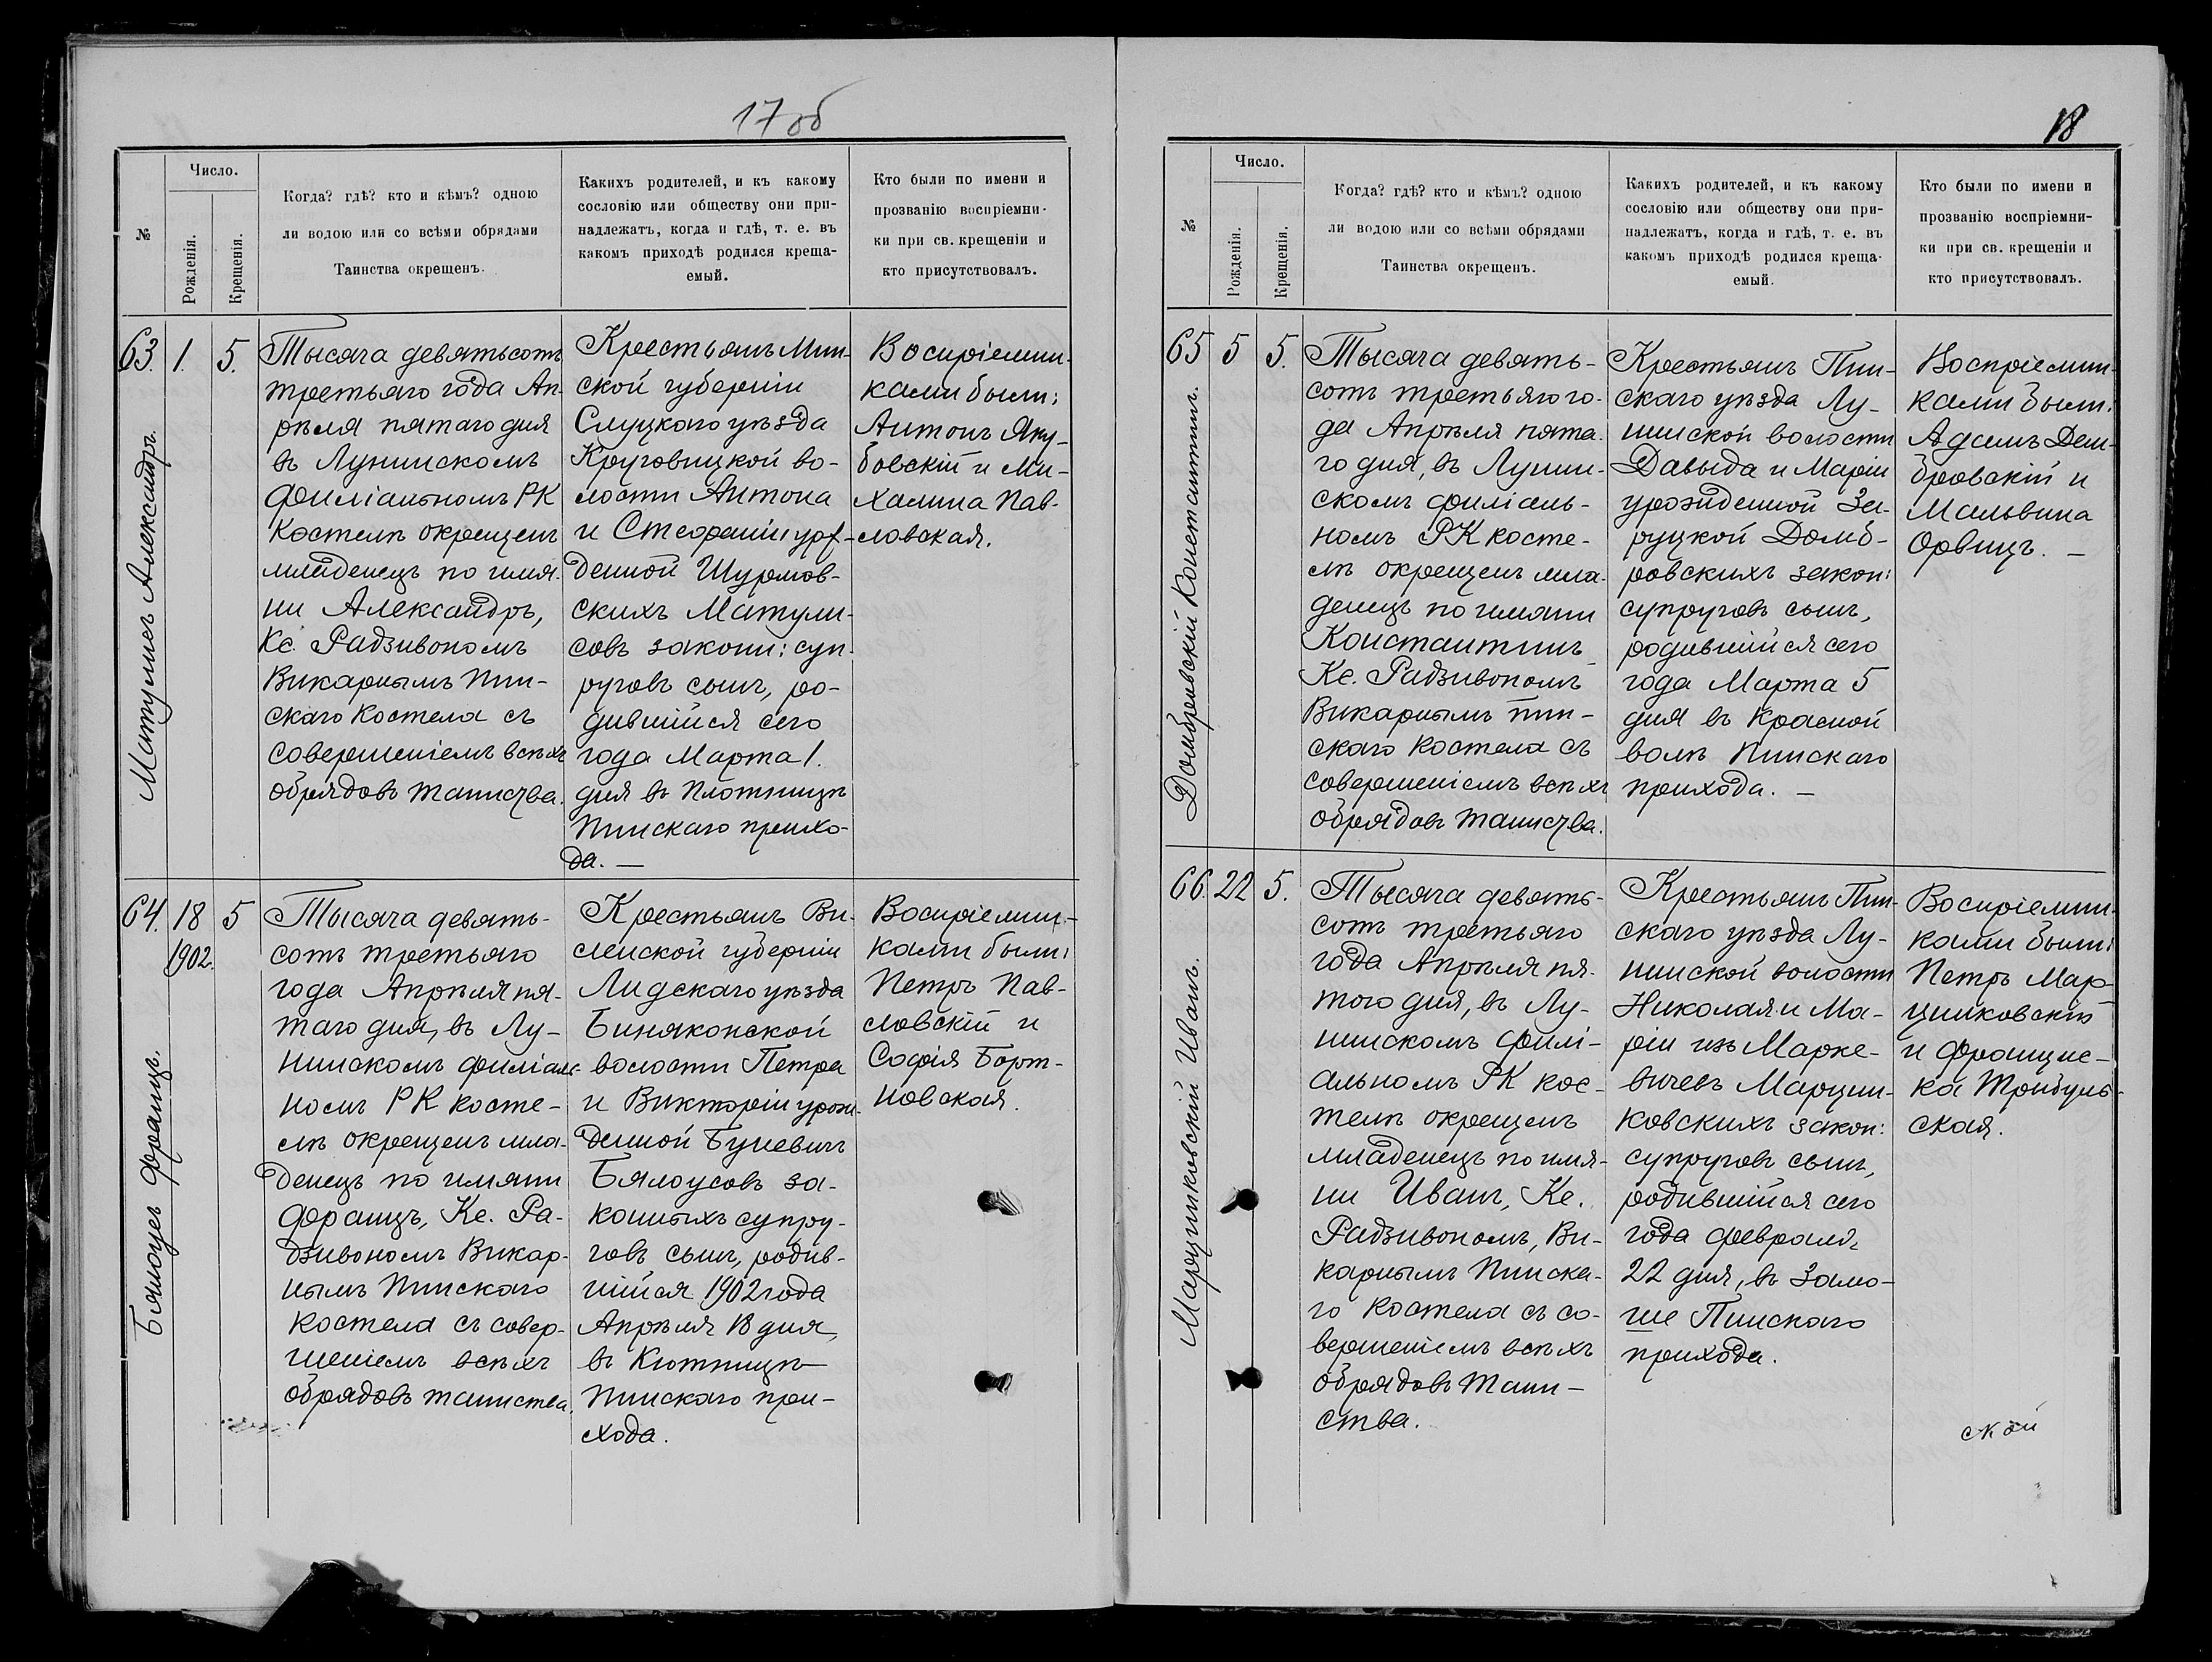 17об
Число.
№
Рожденія.
Крещенія.
Когда? гдѣ? кто и кѣмъ? одною
ли водою или со всѣми обрядами
Таинства окрещенъ.
Какихъ родителей, и къ какому
сословію или обществу они при-
надлежатъ, когда и гдѣ, т. е. въ
какомъ приходѣ родился креща-
емый.
Кто были по имени и
прозванію воспріемни-
ки при св. крещеніи и
кто присутствовалъ.
63. 1. 5.
Матулисъ Александръ.
Тысяча девятьсотъ
третьяго года Ап-
рѣля пятаго дня
въ Лунинскомъ
филіальномъ РК
Костелѣ окрещенъ
младенецъ по имя-
ни Александръ,
Кс. Радзивономъ
Викарнымъ Пин-
скаго Костела съ
совершеніемъ всѣхъ
обрядовъ таинства.
Крестьянъ Мин-
ской губерніи
Слуцкого уѣзда
Круговицкой во-
лости Антона
и Стефаніи урож-
денной Шурмов-
скихъ Матули-
совъ законн: суп-
руговъ сынъ, ро-
дившійся сего
года Марта 1.
дня въ Плотницѣ
Пинскаго прихо-
да. —
Воспріемни-
ками были:
Антонъ Яку-
бовскій и Ми-
халина Пав-
ловская.
64. 18 5
1902.
Бялоусъ Францъ.
Тысяча девять-
сотъ третьяго
года Апрѣля пя-
таго дня, въ Лу-
нинскомъ филіаль-
номъ РК косте-
лѣ окрещенъ мла-
денецъ по имяни
Францъ, Кс. Ра-
дзивономъ Викар-
нымъ Пинскаго
Костела съ совер-
шеніемъ всѣхъ
обрядовъ таинства.
Крестьянъ Ви-
ленской губерніи
Лидскаго уѣзда
Биняконской
волости Петра
и Викторіи урож-
денной Буневичъ
Бялоусовъ за-
конныхъ супру-
говъ сынъ, родив-
шійся 1902 года
Апрѣля 18 дня,
въ Кютницѣ
Пинскаго при-
хода.
Воспріемни-
ками были:
Петръ Пав-
ловскій и
Софія Борт-
новская.
18
Число.
№
Рожденія.
Крещенія.
Когда? гдѣ? кто и кѣмъ? одною
ли водою или со всѣми обрядами
Таинства окрещенъ.
Какихъ родителей, и къ какому
сословію или обществу они при-
надлежатъ, когда и гдѣ, т. е. въ
какомъ приходѣ родился креща-
емый.
Кто были по имени и
прозванію воспріемни-
ки при св. крещеніи и
кто присутствовалъ.
65 5 5.
Домбровскій Константинъ.
Тысяча девять-
сотъ третьяго го-
да Апрѣля пята-
го дня, въ Лунин-
скомъ филіаль-
номъ РК косте-
лѣ окрещенъ мла-
денецъ по имяни
Константинъ
Кс. Радзивономъ
Викарнымъ Пин-
скаго Костела съ
совершеніемъ всѣхъ
обрядовъ таинства.
Крестьянъ Пин-
скаго уѣзда Лу-
нинской волости
Давыда и Маріи
урожденной За-
руцкой Домб-
ровскихъ закон:
супруговъ сынъ,
родившійся сего
года Марта 5
дня въ Красной
волѣ Пинскаго
прихода. —
Воспріемни-
ками были:
Адамъ Дом-
бровскій и
Мальвина
Орвицъ. —
66. 22 5.
Марцинковскій Иванъ.
Тысяча девять-
сотъ третьяго
года Апрѣля пя-
того дня, въ Лу-
нинскомъ филі-
альномъ РК кос-
телѣ окрещенъ
младенецъ по имя-
ни Иванъ, Кс.
Радзивономъ, Ви-
карнымъ Пинска-
го Костела съ со-
вершеніемъ всѣхъ
обрядовъ Таин-
ства.
Крестьянъ Пин-
скаго уѣзда Лу-
нинской волости
Николая и Ма-
ріи изъ Марке-
вичевъ Марцин-
ковскихъ закон:
супруговъ сынъ,
родившійся сего
года февраля
22 дня, въ Замо-
шье Пинскаго
прихода.
Воспріемни-
ками были:
Петръ Мар-
цинковскій
и Францис-
ка Трибуль-
ская.
ской